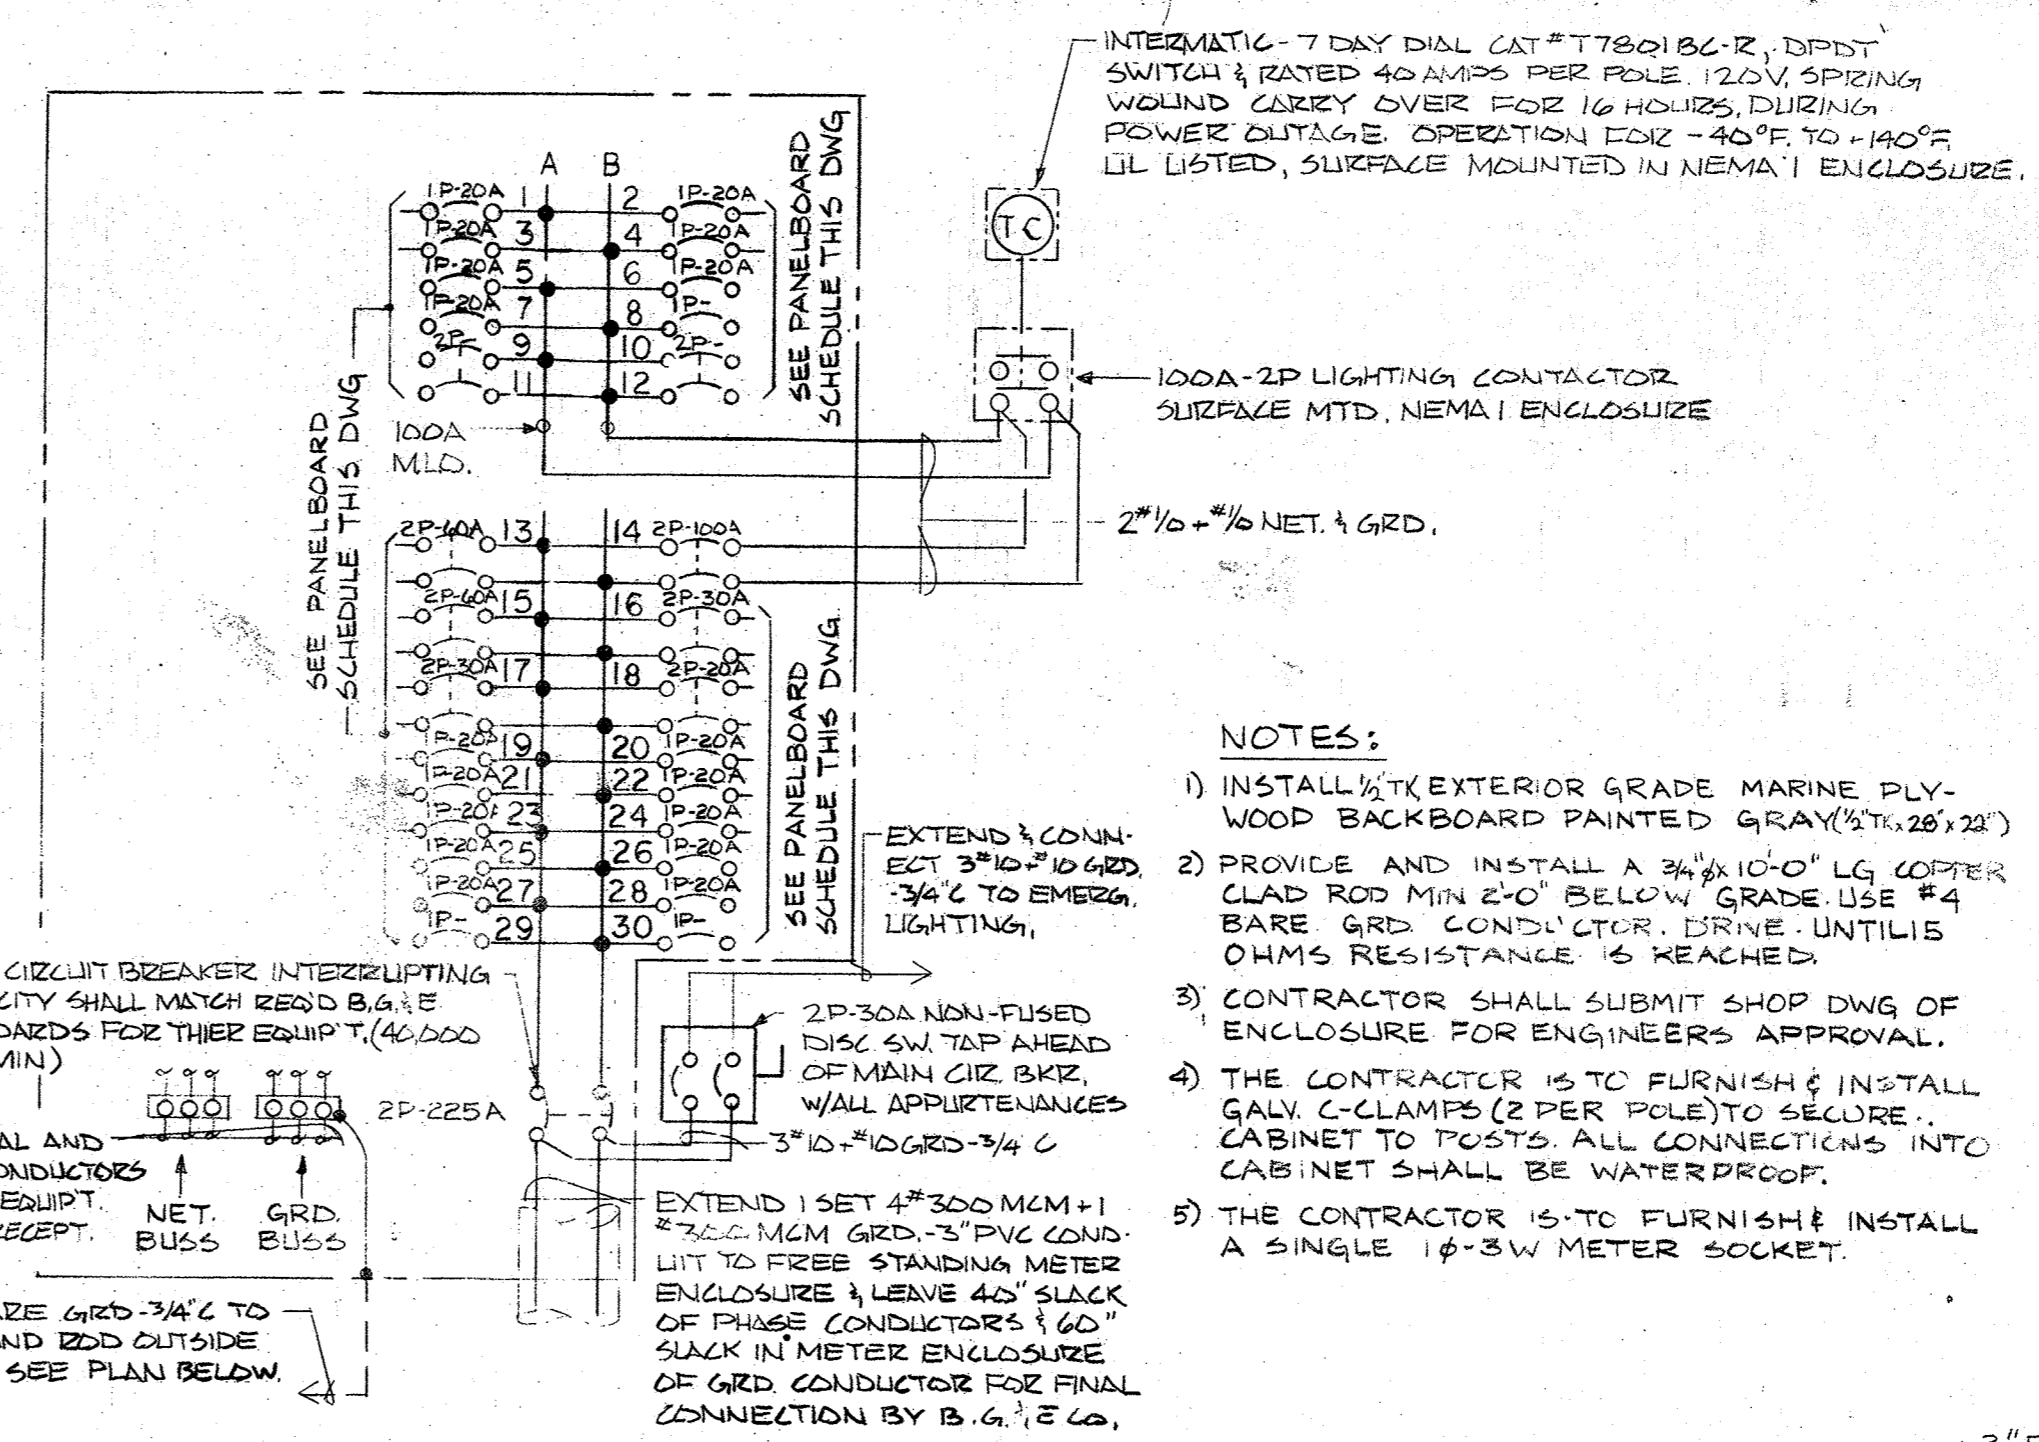 INTERMATIC - 7 DAY DIAL CAT # T7801BC-R, DPDT
SWITCH & RATED 40 AMPS PER POLE. 120V, SPRING
WOUND CARRY OVER FOR 16 HOURS, DURING
POWER OUTAGE. OPERATION FOR -40°F. TO +140°F.
UL LISTED, SURFACE MOUNTED IN NEMA 1 ENCLOSURE.
TC
100A-2P LIGHTING CONTACTOR
SURFACE MTD. NEMA 1 ENCLOSURE
2#1/0 + #1/0 NET. & GRD.
A B
1P-20A 1 2 1P-20A
1P-20A 3 4 1P-20A
1P-20A 5 6 1P-20A
1P-20A 7 8 1P-
2P- 9 10 2P-
11 12
100A
M.L.O.
SEE PANELBOARD
SCHEDULE THIS DWG
SEE PANELBOARD
SCHEDULE THIS DWG
2P-60A 13 14 2P-100A
2P-60A 15 16 2P-30A
2P-30A 17 18 2P-20A
1P-20A 19 20 1P-20A
1P-20A 21 22 1P-20A
1P-20A 23 24 1P-20A
1P-20A 25 26 1P-20A
1P-20A 27 28 1P-20A
1P- 29 30 1P-
SEE PANELBOARD
SCHEDULE THIS DWG.
EXTEND & CONN-
ECT 3#10+#10 GRD.
-3/4"C TO EMERG.
LIGHTING.
CIRCUIT BREAKER INTERRUPTING
CITY SHALL MATCH REQ'D B.G.& E
DARDS FOR THIER EQUIP'T. (40,000
MIN)
2P-225A
2P-30A NON-FUSED
DISC. SW. TAP AHEAD
OF MAIN CIR. BKR.
W/ALL APPURTENANCES
3#10+#10 GRD-3/4 C
AL AND
ONDUCTORS
EQUIP'T.
RECEPT.
NET.
BUSS
GRD.
BUSS
ARE GRD-3/4"C TO
AND ROD OUTSIDE
SEE PLAN BELOW.
EXTEND 1 SET 4#300 MCM + 1
#300 MCM GRD.-3" PVC COND-
UIT TO FREE STANDING METER
ENCLOSURE & LEAVE 40" SLACK
OF PHASE CONDUCTORS & 60"
SLACK IN METER ENCLOSURE
OF GRD. CONDUCTOR FOR FINAL
CONNECTION BY B.G.& E CO.
NOTES:
1) INSTALL 1/2"TK EXTERIOR GRADE MARINE PLY-
WOOD BACKBOARD PAINTED GRAY (1/2"TK x 28" x 22")
2) PROVIDE AND INSTALL A 3/4"ø x 10'-0" LG COPPER
CLAD ROD MIN 2'-0" BELOW GRADE. USE #4
BARE GRD. CONDUCTOR. DRIVE UNTIL 15
OHMS RESISTANCE IS REACHED.
3) CONTRACTOR SHALL SUBMIT SHOP DWG OF
ENCLOSURE FOR ENGINEERS APPROVAL.
4) THE CONTRACTOR IS TO FURNISH & INSTALL
GALV. C-CLAMPS (2 PER POLE) TO SECURE
CABINET TO POSTS. ALL CONNECTIONS INTO
CABINET SHALL BE WATERPROOF.
5) THE CONTRACTOR IS TO FURNISH & INSTALL
A SINGLE 1ø-3W METER SOCKET.